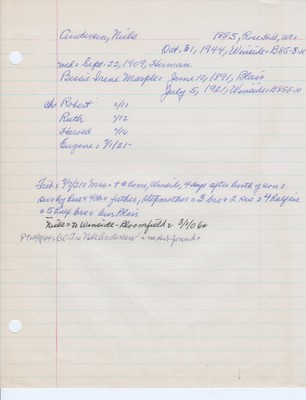 Andersen, Niels 1885, Rose Hill, Wis
Oct. 31, 1944, Winside = B 85 S-10
md: Sept. 22, 1909, Herman
Bessie Irene Marple = June 10, 1891, Blair
July 5, 1921, Winside = B 85 S-10
ch: Robert 2/11
Ruth 7/12
Harold 4/14
Eugene = 7/1/21-
Trib: 7/7/21 = Mrs at home, 4 days after birth of son =
Sur by hus + 4 ch = father, Stepmother = 3 bro + 2 sis = 4 half sis
+ 5 half bro = bur Blair
Niels = to Winside - Bloomfield = 3/1/06